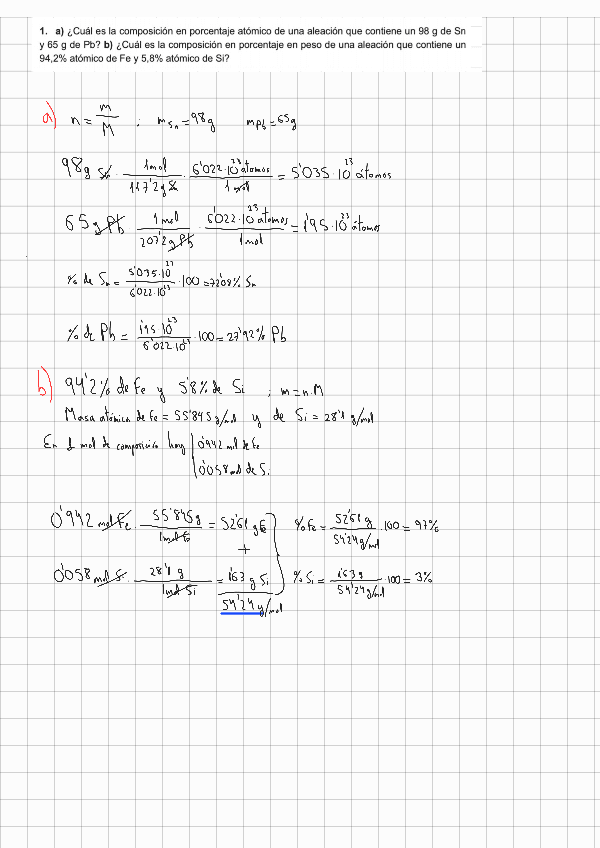 1. a) ¿Cuál es la composición en porcentaje atómico de una aleación que contiene un 98 g de Sn
y 65 g de Pb? b) ¿Cuál es la composición en porcentaje en peso de una aleación que contiene un
94,2% atómico de Fe y 5,8% atómico de Si?
a) n = m/M ; mSn = 98g mPb = 65g
98g Sn · 1mol/117'2g Sn · 6'022·10^23 átomos/1 mol = 5'035·10^23 átomos
65g Pb · 1mol/207'2g Pb · 6'022·10^23 átomos/1mol = 1'95·10^23 átomos
% de Sn = 5'035·10^23/6'022·10^23 · 100 = 72'08% Sn
% de Pb = 1'95 10^23/6'022 10^23 · 100 = 27'92% Pb
b) 94'2% de Fe y 5'8% de Si ; m = n.M
Masa atómica de Fe = 55'845g/mol y de Si = 28'1 g/mol
En 1 mol de composición hay 0'942 mol de Fe
0'058 mol de Si
0'942 mol Fe · 55'845g/1mol Fe = 52'61 g Fe % Fe = 52'61 g/54'24 g/mol · 100 = 97%
+
0'058 mol Si · 28'1 g/1mol Si = 1'63 g Si % Si = 1'63 g/54'24 g/mol · 100 = 3%
54'24 g/mol